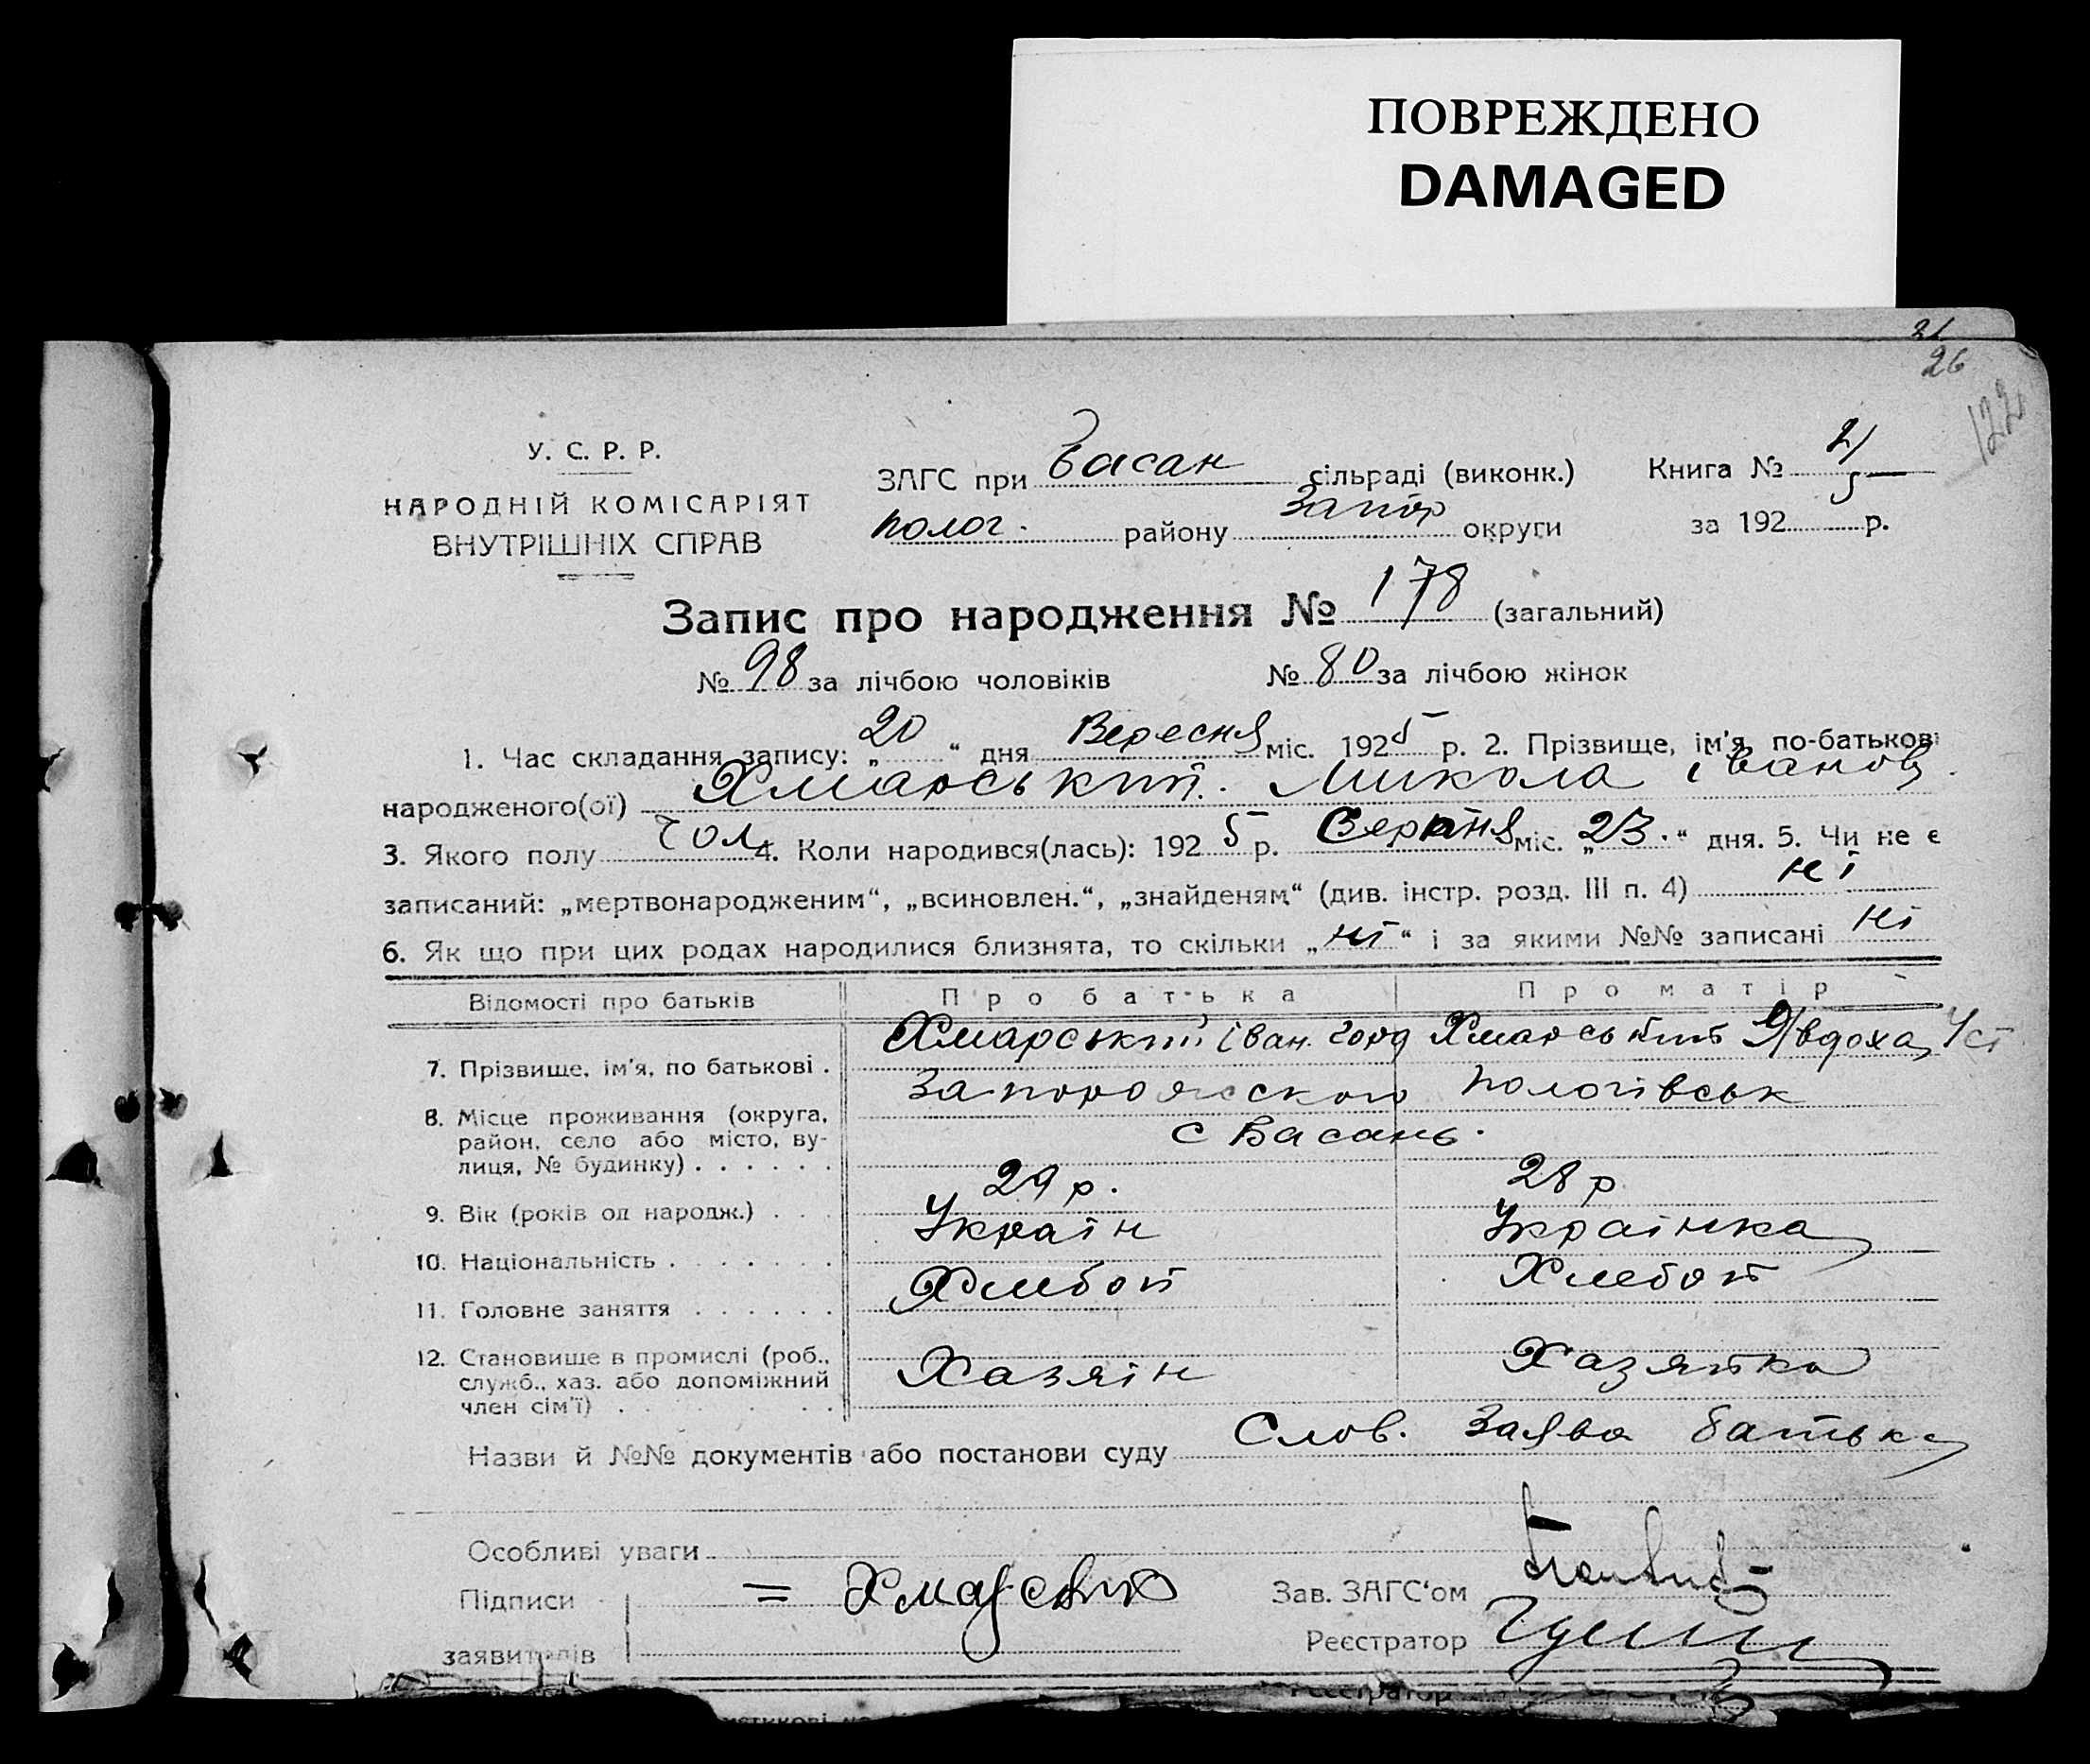 ПОВРЕЖДЕНО
DAMAGED
21
26
122
У. С. Р. Р.
НАРОДНІЙ КОМІСАРІЯТ
ВНУТРІШНІХ СПРАВ
ЗАГС при Басан сільраді (виконк.) Книга № 2/
полог. району Запор округи за 1925 р.
Запис про народження № 178 (загальний)
№ 98 за лічбою чоловіків № 80 за лічбою жінок
1. Час складання запису: „20“ дня Вересня міс. 1925 р. 2. Прізвище, ім'я, по-батькові
народженого(ої) Хмарський. Микола Іванов
3. Якого полу чол. 4. Коли народився(лась): 1925 р. Серпня міс. „23.“ дня. 5. Чи не є
записаний: „мертвонародженим“, „всиновлен.“, „знайденям“ (див. інстр. розд. III п. 4) ні
6. Як що при цих родах народилися близнята, то скільки „ні“ і за якими №№ записані ні
Відомості про батьків Про батька Про матір
7. Прізвище, ім'я, по батькові . Хмарський Іван Явдоха Уст
8. Місце проживання (округа, Запорожского Пологівськ
район, село або місто, ву- с Басань.
лиця, № будинку) . . . . . .
9. Вік (років од народж.) . . . 29 р. 28 р
10. Національність . . . . . . . Україн Українка
11. Головне заняття . . . . . . Хлебоп Хлебоп
12. Становище в промислі (роб., Хазяін Хазяйка
служб., хаз. або допоміжний
член сім'ї) . . . . . .
Назви й №№ документів або постанови суду Слов. Заява батька
Особливі уваги
Підписи = Хмарский Зав. ЗАГС'ом
заявителів Реєстратор
Реєстратор